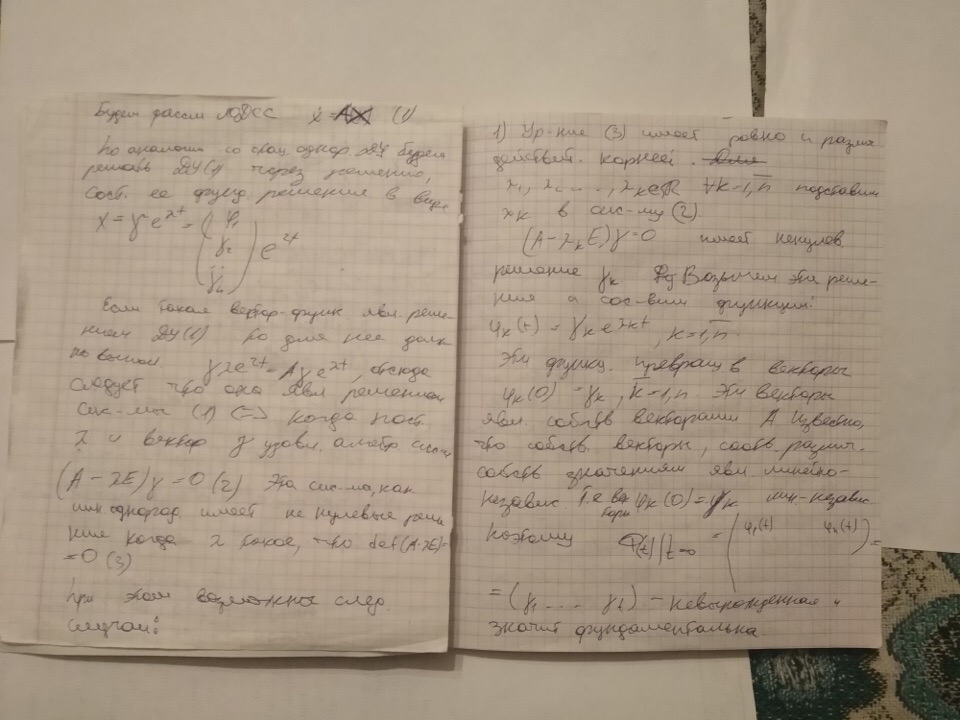 Будем рассм ЛОДСС ẋ = (1)
по аналогии со скал. однор. ДУ будем
решать ДУ(1) через решение,
сост. ее фунд. решения в виде
x = γe^λt = (γ₁ γ₂ ... γₙ) e^λt
Если такая вектор-функ явл. реше-
нием ДУ(1) то для нее долж
γλe^λt = Aγe^λt, отсюда
следует что она явл решением
сис-мы (1) <=> когда пост.
λ и вектор γ удовл. алгебр сис-ме
(A - λE)γ = 0 (2) Эта сис-ма, как
лин однород имеет не нулевые реше
ние когда λ такое, что det(A-λE)=
= 0 (3)
при этом возможны след.
случаи:
1) Ур-ние (3) имеет ровно n разли
действит. корней.
λ₁, λ₂ ... , λₖ∈ℝ ∀k=1,n̅ подставим
λₖ в сис-му (2)
(A - λₖE)γ = 0 имеет ненулев.
решение γₖ Возьмем эти реше-
ния и сос-вим функции:
φₖ(t) = γₖ e^λₖt, k=1,n̅
Эти функц. превращ в векторы
φₖ(0) = γₖ, k=1,n̅ Эти векторы
явл. собств векторами A Известно,
что собств. векторы, соотв. различ.
собств значениям явл линейно-
независ т.е век торы φₖ(0) = γₖ лин-независ.
поэтому Φ(t)|t=0 = (φ₁(t) φₙ(t)) =
= (γ₁ ... γₖ) - невырожденная и
значит фундаментальна